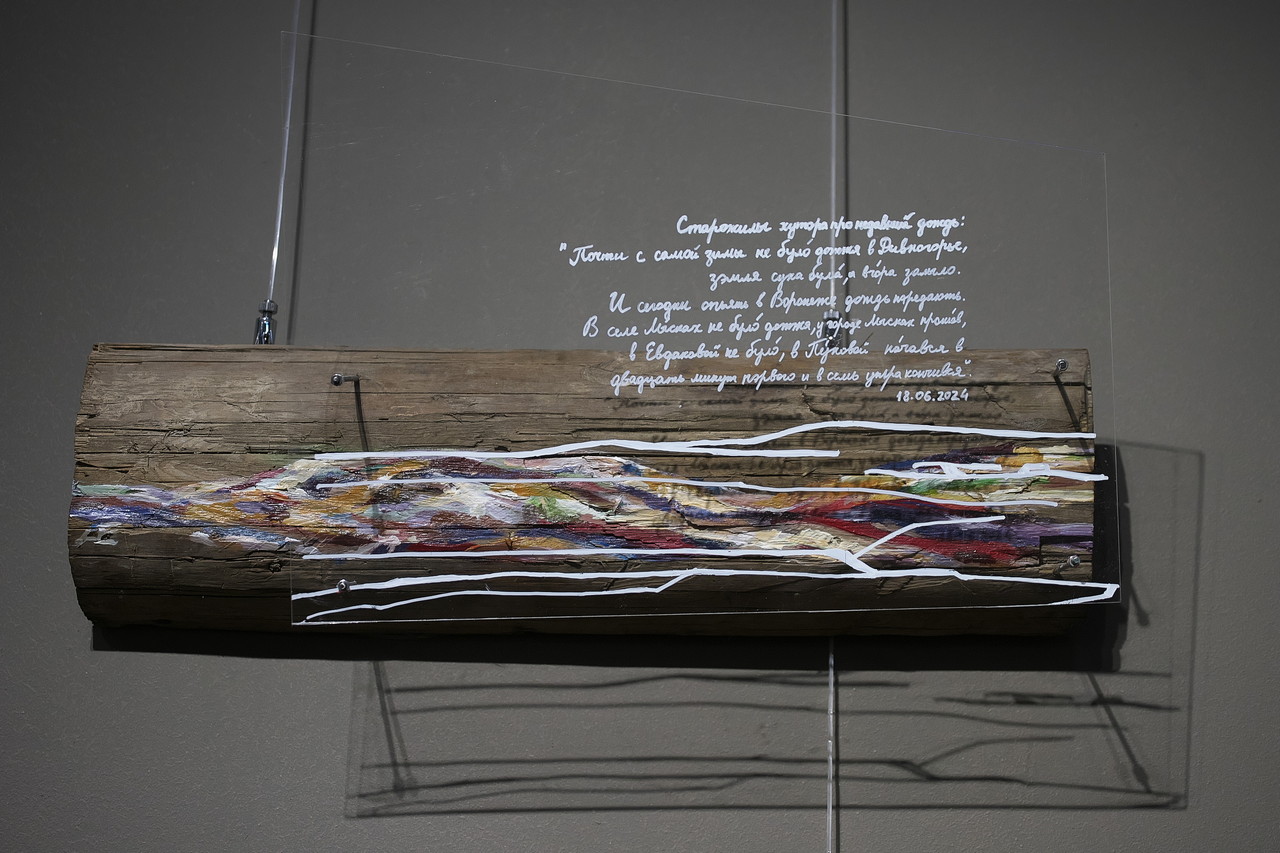 Старожилы хутора про недавний дождь:
"Почти с самой зимы не було́ дожжя в Дивногорье,
зэмля суха була́ и вго́ра за́мыло.
И сегодни опьять в Воронеже дождь передають.
В селе Мысках не було́ дожжя, у городе Мысках проше́в,
в Евдаковой не було́, в Пуховой на́чався в
двадцать минут первого и в семь утра кончився".
18.06.2024